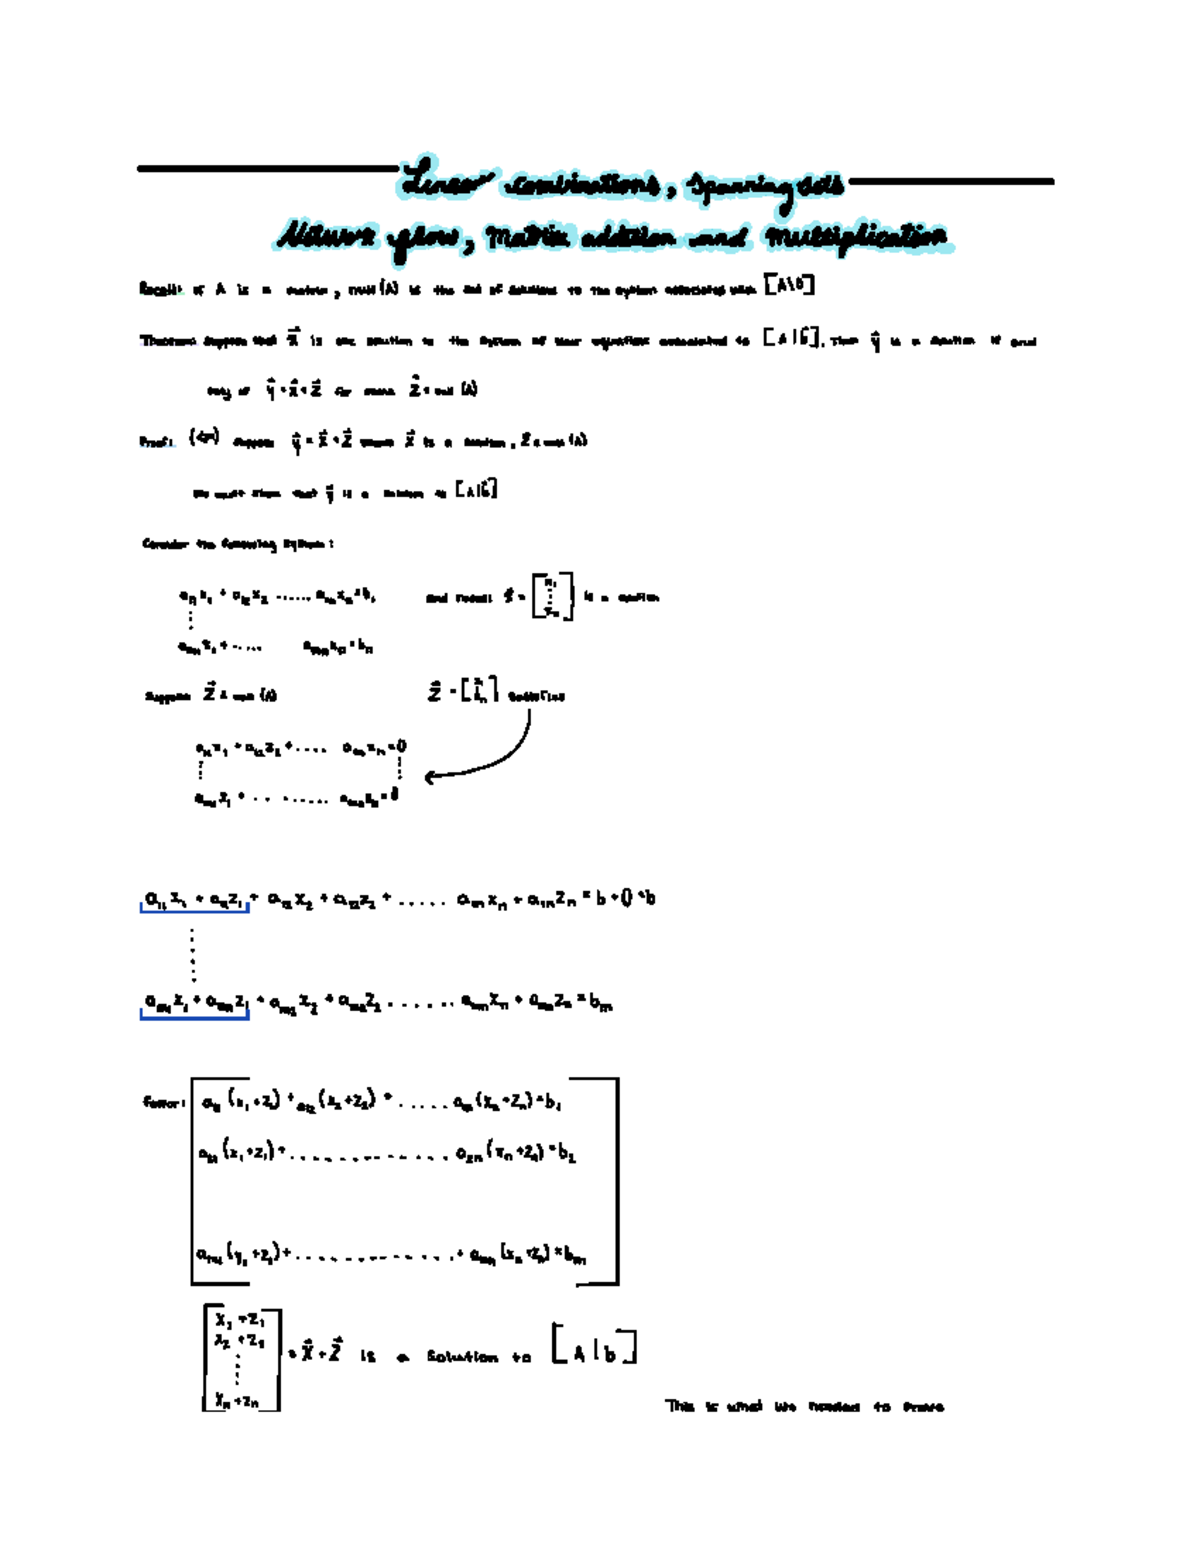 Linear combinations, Spanning Sets
Network flow, Matrix addition and multiplication
Recall: if A is a matrix, null(A) is the set of solutions to the system associated with [A\0]
Theorem: Suppose that x⃗ is one solution to the system of linear equations associated to [A|b⃗]. Then y⃗ is a solution if and
only if y⃗ = x⃗ + z⃗ for some z⃗ ∈ null(A)
Proof: (⇐) Suppose y⃗ = x⃗ + z⃗ where x⃗ is a solution, z ∈ null(A)
We must show that y⃗ is a solution to [A|b⃗]
Consider the following system:
a₁₁x₁ + a₁₂x₂ ...... a₁ₙxₙ = b₁ and recall x⃗ = [x₁ ⋮ xₙ] is a solution
⋮
aₘ₁x₁ + ..... aₘₙxₙ = bₙ
Suppose z⃗ ∈ null(A) z⃗ = [z₁ ⋮ zₙ] satisfies
a₁₁z₁ + a₁₂z₂ + ..... a₁ₙzₙ = 0
⋮ ⋮
aₘ₁z₁ + .......... aₘₙzₙ = 0
a₁₁x₁ + a₁₁z₁ + a₁₂x₂ + a₁₂z₂ + ..... a₁ₙxₙ + a₁ₙzₙ = b + 0 = b
⋮
aₘ₁x₁ + aₘ₁z₁ + aₘ₂x₂ + aₘ₂z₂ ...... aₘₙxₙ + aₘₙzₙ = bₘ
Factor: a₁₁(x₁+z₁) + a₁₂(x₂+z₂) + ..... a₁ₙ(xₙ+zₙ) = b₁
a₂₁(x₁+z₁) + .............. a₂ₙ(xₙ+zₙ) = b₂
aₘ₁(x₁+z₁) + .............. + aₘₙ(xₙ+zₙ) = bₘ
[x₁+z₁
x₂+z₂
⋮
xₙ+zₙ] = x⃗ + z⃗ is a solution to [A|b]
This is what we needed to prove